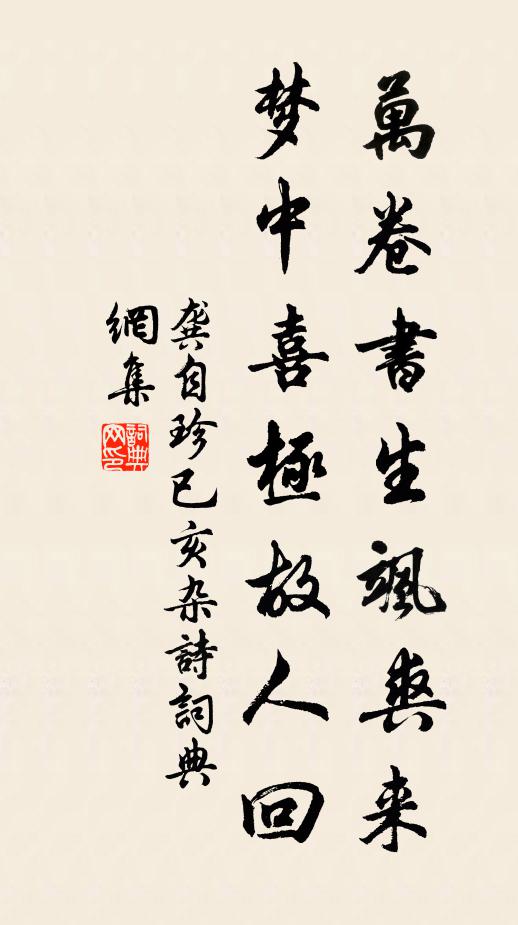 萬卷書生颯爽来
梦中喜極故人回
龚自珍已亥杂詩詞典
網集
詞典
网印